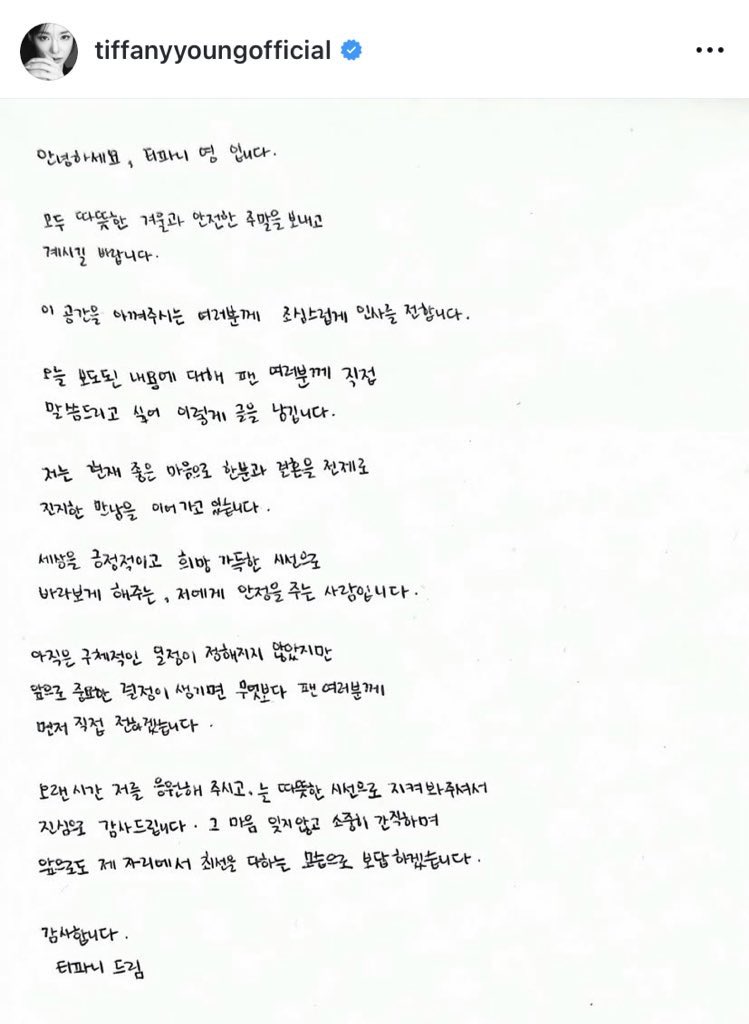 tiffanyyoungofficial
안녕하세요, 티파니 영 입니다.
모두 따뜻한 겨울과 안전한 주말을 보내고
계시길 바랍니다.
이 공간을 아껴주시는 여러분께 조심스럽게 인사를 전합니다.
오늘 보도된 내용에 대해 팬 여러분께 직접
말씀드리고 싶어 이렇게 글을 남깁니다.
저는 현재 좋은 마음으로 한분과 결혼을 전제로
진지한 만남을 이어가고 있습니다.
세상을 긍정적이고 희망 가득한 시선으로
바라보게 해주는, 저에게 안정을 주는 사람입니다.
아직은 구체적인 일정이 정해지지 않았지만
앞으로 중요한 결정이 생기면 무엇보다 팬 여러분께
먼저 직접 전하겠습니다.
오랜시간 저를 응원해 주시고, 늘 따뜻한 시선으로 지켜봐주셔서
진심으로 감사드립니다. 그 마음 잊지않고 소중히 간직하며
앞으로도 제 자리에서 최선을 다하는 모습으로 보답하겠습니다.
감사합니다.
티파니 드림